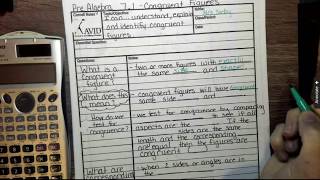 Pre Algebra 7.1 - Congruent Figures
Cornell Notes
AVID
Topic/Objective:
Name:
I can understand, explain
and identify congruent
figures.
Class/Period:
Date:
Essential Question:
Questions:
Notes:
What is a
congruent
figure?
- two or more figures with exactly
the same side and shape.
What does this
mean?
- congruent figures will have congruent
same side and
How do we
test for
congruence?
- we test for congruence by comparing
aspects are the If the
sides are the same
length and the corresponding
are equal, then the figures are
congruent
What are
corresponding
- when 2 sides or angles is in
the